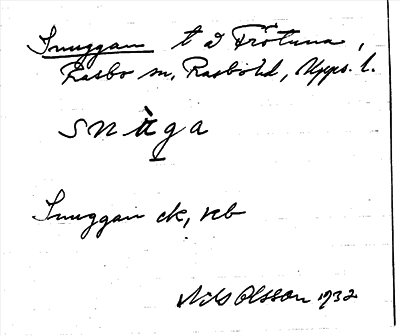 Snuggan t ä Frötuna,
Rasbo sn, Rasbo hd, Upps. l.
snùga
Snuggan ek, reb
Nils Olsson 1932